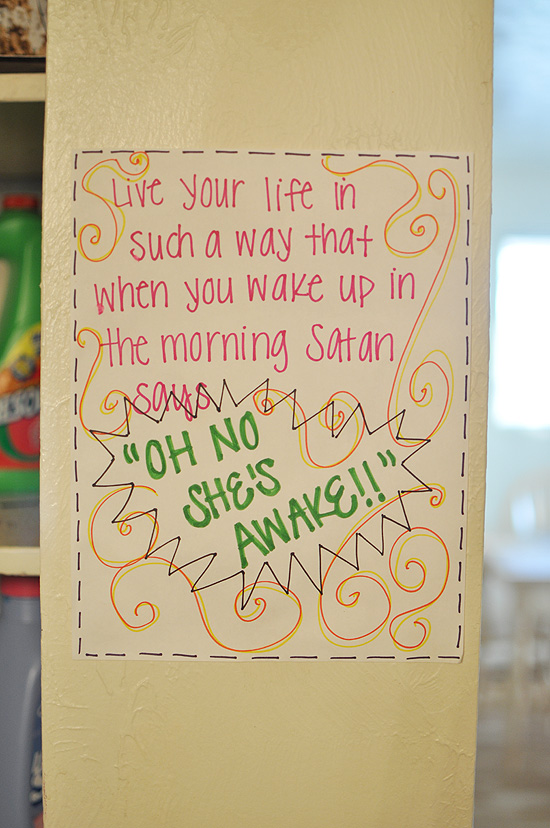 Live your life in
such a way that
when you wake up in
the morning Satan
says
"OH NO
SHE'S
AWAKE!!"